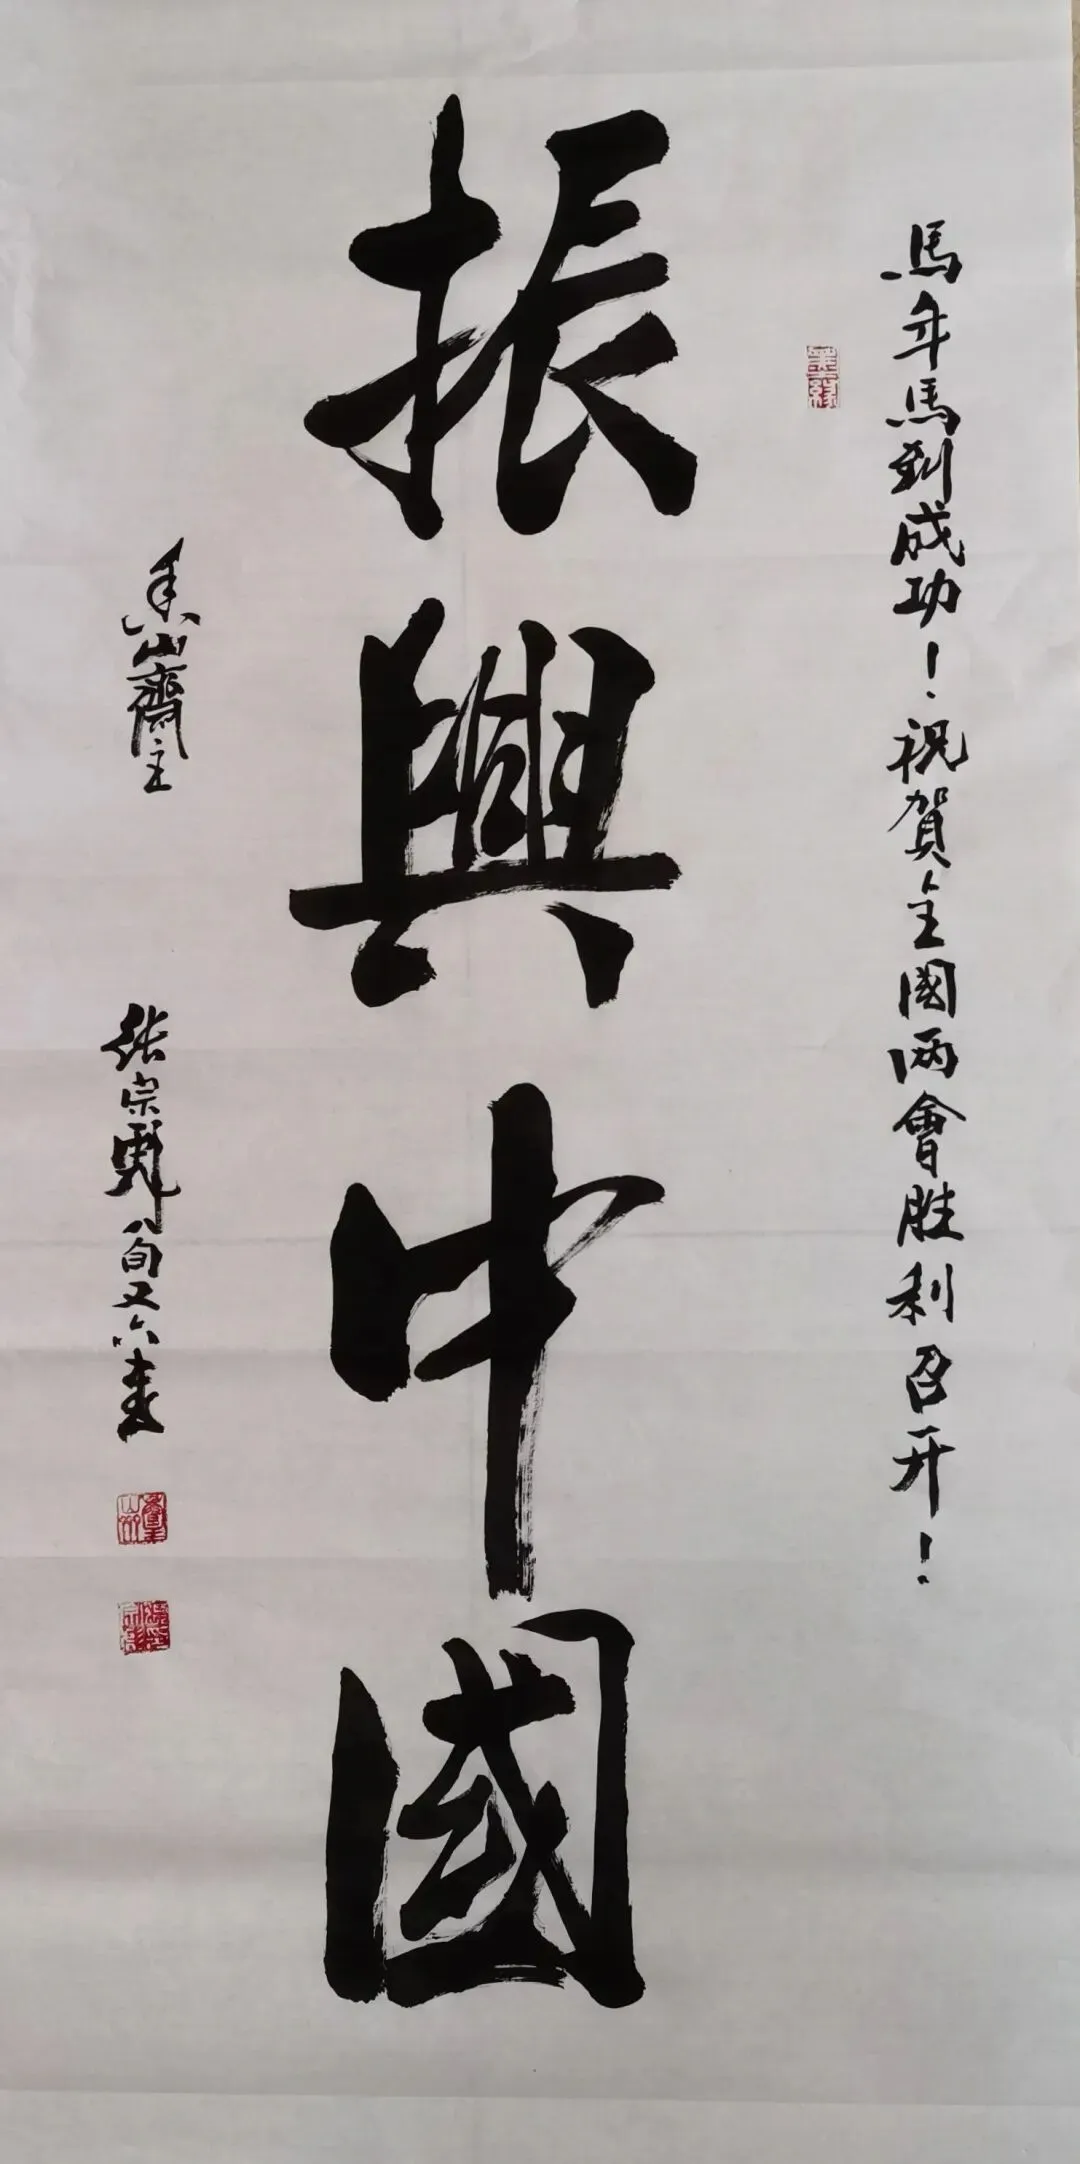 馬年馬到成功！祝賀全國两會胜利召开！
墨緣
振興中國
山齋主
张宗彪八旬又六書